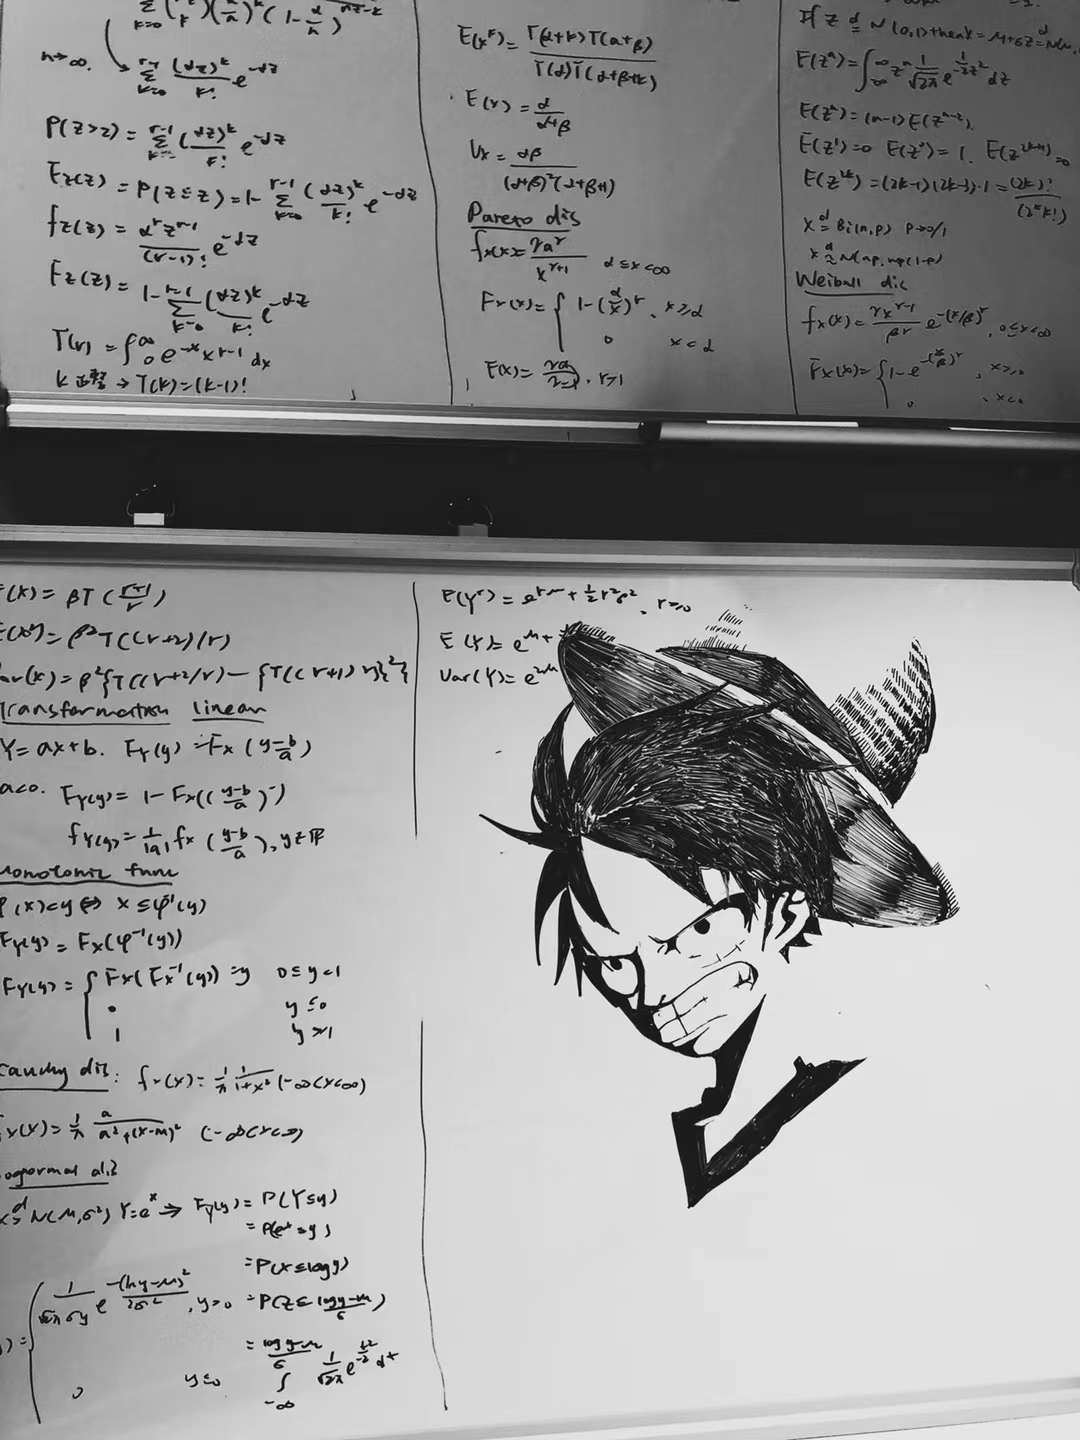 n→∞. → Σ_{k=0}^{r-1} (αz)^k/k! e^{-αz}
P(Z>z) = Σ^{r-1} (αz)^k/k! e^{-αz}
F_Z(z) = P(Z≤z) = 1- Σ_{k=0}^{r-1} (αz)^k/k! e^{-αz}
f_Z(z) = α^r z^{r-1}/(r-1)! e^{-αz}
F_Z(z) = 1- Σ_{k=0}^{r-1} (αz)^k/k! e^{-αz}
T(r) = ∫_0^∞ e^{-x} x^{r-1} dx
→ T(k)=(k-1)!
E(X^k) = T(α+k)T(α+β)/T(α)T(α+β+k)
E(X) = α/α+β
V_X = αβ/(α+β)²(α+β+1)
Pareto dis
f_X(x) = ra^r/x^{r+1} α≤x<∞
F_X(x) = { 1-(α/x)^r, x≥α
0 x<α
E(X) = rα/r-1, r>1
If Z =^d N(0,1) then X=M+σZ =^d N(M,
E(Z^n) = ∫_{-∞}^{∞} z^n 1/√2π e^{-½z²} dz
E(Z^n) = (n-1) E(Z^{n-2}).
E(Z')=0 E(Z²)=1. E(Z^{2k+1})=0
E(Z^{2k})=(2k-1)(2k-3)·1 = (2k)!/(2^k k!)
X =^d Bi(n,p) p→0/1
X ≈^d N(np, np(1-p))
Weiball dis
f_X(x) = rx^{r-1}/β^r e^{-(x/β)^r}, 0≤x<∞
F_X(x) = { 1-e^{-(x/β)^r}, x≥0
0 , x<0
E(X) = βT(r+1/r)
E(X²) = β²T((r+2)/r)
Var(X) = β²{T((r+2/r) - {T((r+1) r)}²}
Transformation linear
Y=ax+b. F_Y(y) = F_X(y-b/a)
a<0. F_Y(y) = 1-F_X((y-b/a)^-)
f_Y(y) = 1/|a| f_X (y-b/a), y∈R
Monotonic func
φ(X)<y ⇔ X≤φ^{-1}(y)
F_Y(y) = F_X(φ^{-1}(y))
F_Y(y) = { F_X(F_X^{-1}(y)) = y 0≤y<1
0 y≤0
1 y≥1
Cauchy dis: f_X(x) = 1/π 1/1+x² (-∞<x<∞)
f_X(x) = 1/π a/a²+(x-M)² (-∞<x<∞)
ognormal dis
X =^d N(M,σ²) Y=e^x ⇒ F_Y(y) = P(Y≤y)
= P(e^x≤y)
= P(X≤log y)
{ 1/√2π σy e^{-(ln y-M)²/2σ²}, y>0 = P(Z≤ log y-M/σ)
0 y≤0 = ∫_{-∞}^{log y-M/σ} 1/√2π e^{t²/-2} dt
E(Y^r) = e^{rM+½r²σ²}, r≥0
E(Y)= e^{M+
Var(Y)= e^{2M